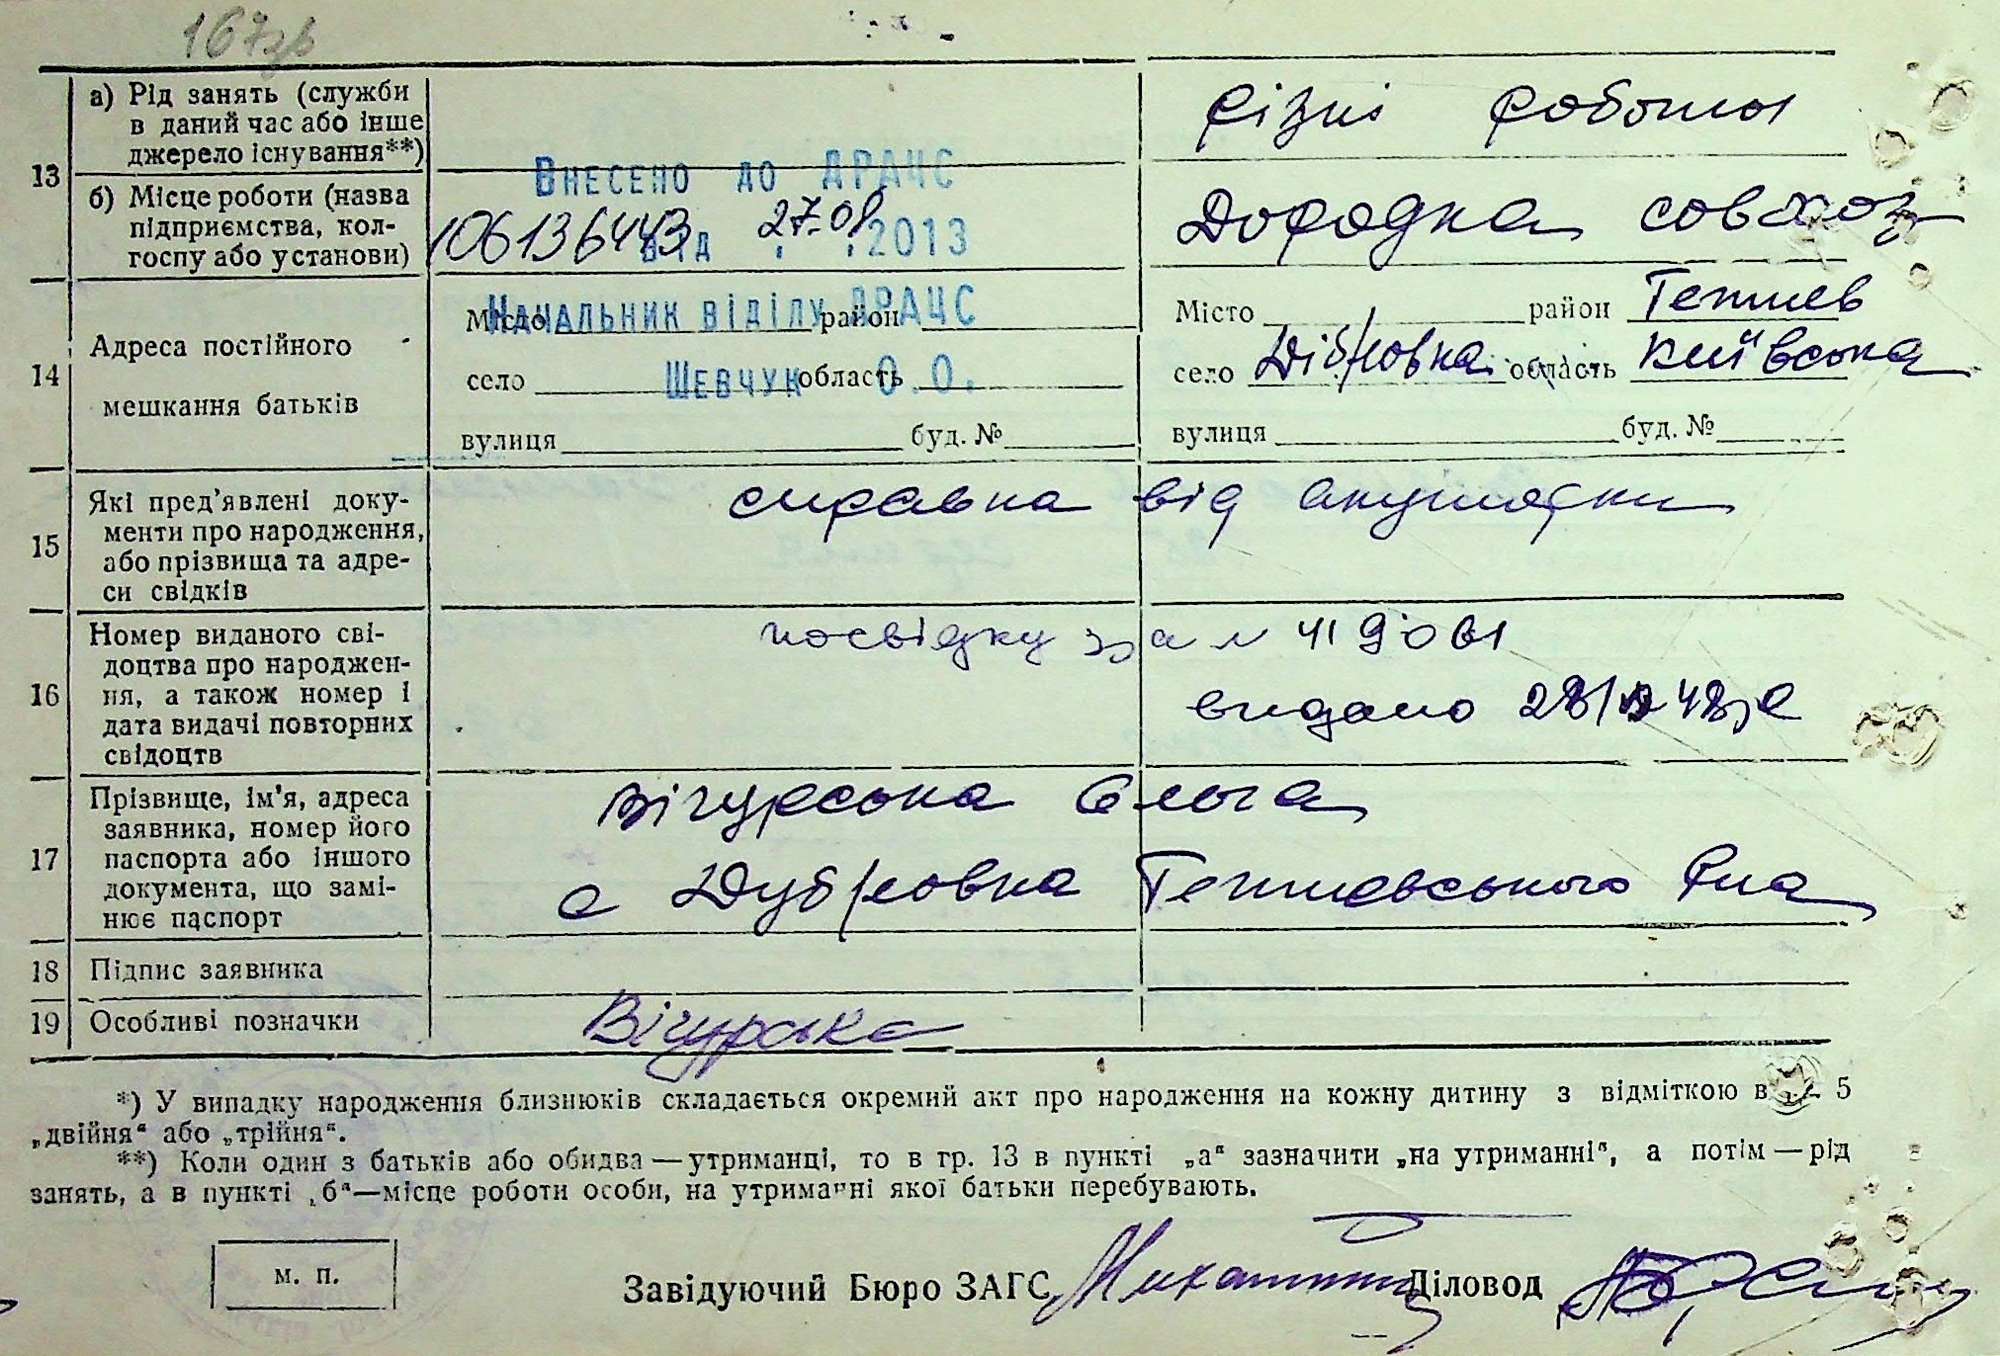 167зв
13
а) Рід занять (служби
в даний час або інше
джерело існування**)
різні роботи
б) Місце роботи (назва
підприємства, кол-
госпу або установи)
Дородка совхоз
Внесено до ДРАЧС
106136443 від 27.08.2013
Начальник відділу ДРАЧС
Шевчук О.О.
14
Адреса постійного
мешкання батьків
Місто район
село область
вулиця буд. №
Місто район Тетиев
село Дібровка область Київська
вулиця буд. №
15
Які пред'явлені доку-
менти про народження,
або прізвища та адре-
си свідків
справка від акушерки
16
Номер виданого сві-
доцтва про народжен-
ня, а також номер і
дата видачі повторних
свідоцтв
посвідку за №
видано
17
Прізвище, ім'я, адреса
заявника, номер його
паспорта або іншого
документа, що замі-
нює паспорт
Вігурська Ольга
с Дубровка Тетиевського р-на
18
Підпис заявника
19
Особливі позначки
Вігурська
*) У випадку народження близнюків складається окремий акт про народження на кожну дитину з відміткою в 5
„двійня“ або „трійня“.
**) Коли один з батьків або обидва — утриманці, то в гр. 13 в пункті „а“ зазначити „на утриманні“, а потім — рід
занять, а в пункті „б“—місце роботи особи, на утриманні якої батьки перебувають.
м. п.
Завідуючий Бюро ЗАГС
Діловод